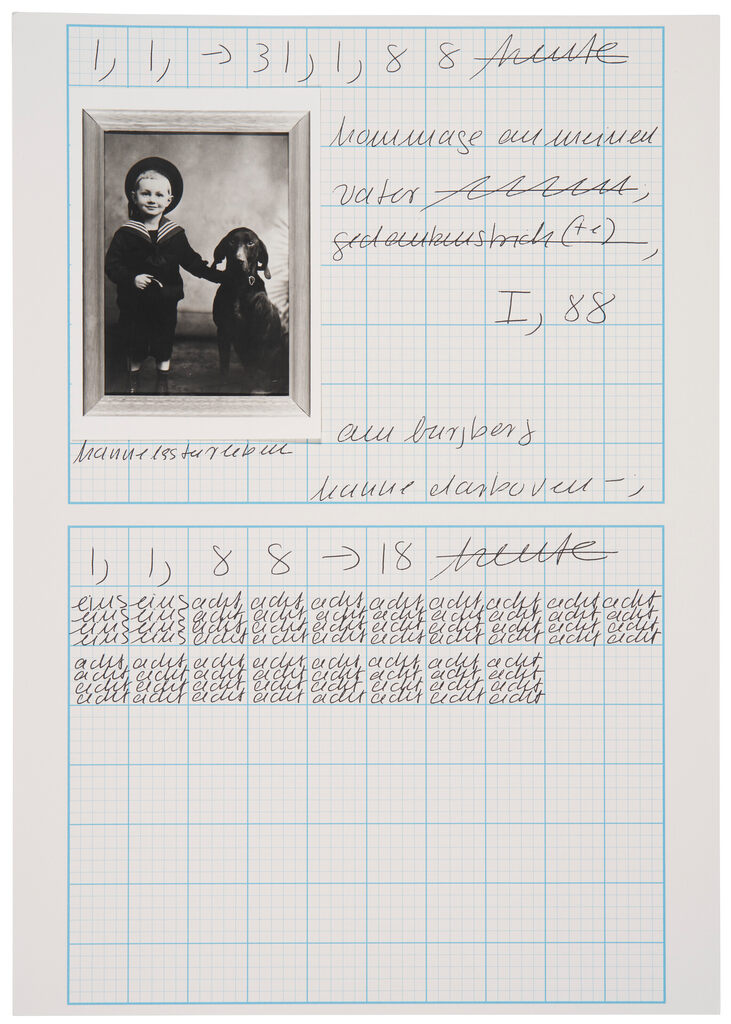 1, 1, → 31, 1, 8 8 heute
hommage an meinen
vater
gedankenstrich(te) ,
I, 88
am burgberg
hanne darboven – ,
1, 1, 8 8 → 18 heute
eins eins acht, acht, acht, acht, acht, acht, acht, acht,
eins eins acht, acht, acht, acht, acht, acht, acht, acht,
eins eins acht, acht, acht, acht, acht, acht, acht, acht,
eins eins acht acht acht acht acht acht acht acht
acht, acht, acht, acht, acht, acht, acht, acht,
acht, acht, acht, acht, acht, acht, acht, acht,
acht, acht, acht, acht, acht, acht, acht, acht,
acht acht acht acht acht acht acht acht